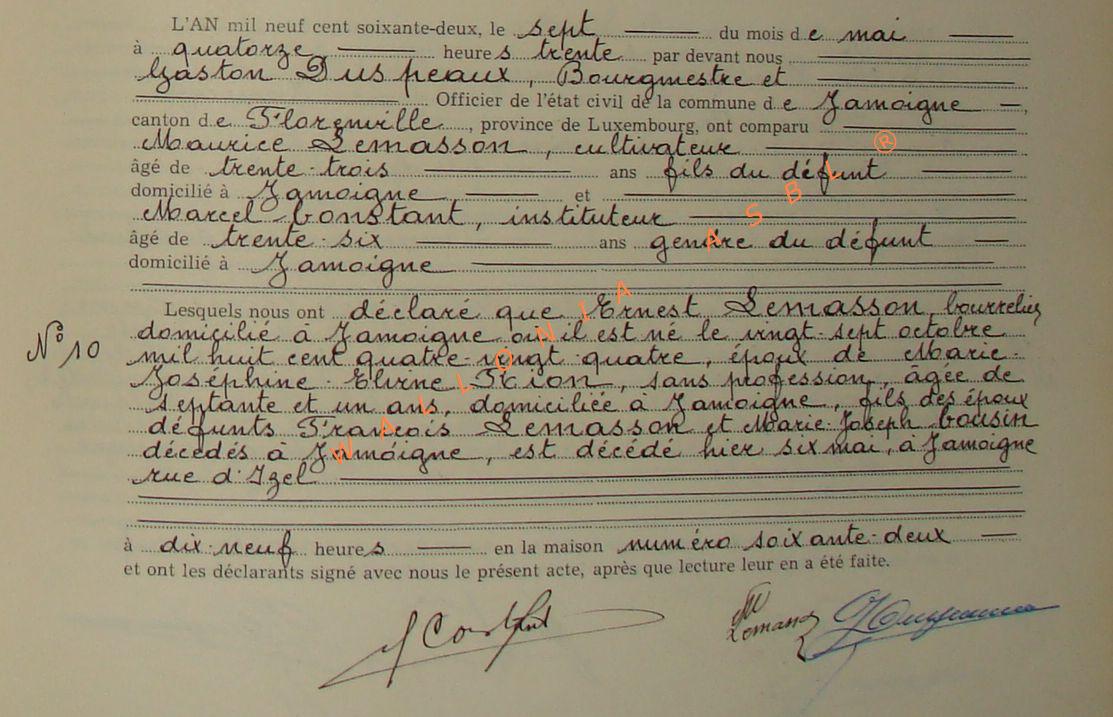 L'AN mil neuf cent soixante-deux, le sept du mois de mai
à quatorze heures trente par devant nous
Gaston Duspeaux, Bourgmestre et
Officier de l'état civil de la commune de Jamoigne,
canton de Florenville, province de Luxembourg, ont comparu
Maurice Lemasson, cultivateur
âgé de trente-trois ans fils du défunt
domicilié à Jamoigne et
Marcel Constant, instituteur
âgé de trente-six ans gendre du défunt
domicilié à Jamoigne
Lesquels nous ont déclaré que Ernest Lemasson, bourrelier
domicilié à Jamoigne où il est né le vingt-sept octobre
N° 10
mil huit cent quatre-vingt-quatre, époux de Marie-
Joséphine-Elirne, sans profession, âgée de
septante et un ans, domiciliée à Jamoigne, fils des époux
défunts François Lemasson et Marie-Joseph Cousin
décédés à Jamoigne, est décédé hier six mai, à Jamoigne
rue d'Izel
à dix-neuf heures en la maison numéro soixante-deux
et ont les déclarants signé avec nous le présent acte, après que lecture leur en a été faite.
WALLONIA ASBL ®